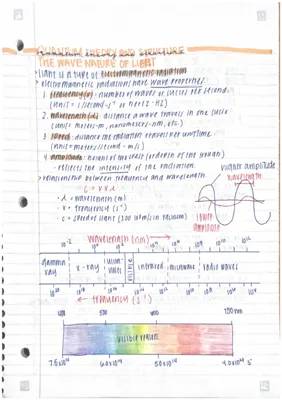 QUANTUM THEORY AND STRUCTURE
THE WAVE NATURE OF LIGHT
light is a type of electromagnetic radiation
electromagnetic radiations have wave properties:
1. frequency (v): number of waves or cycles per second.
(unit = 1/second = s⁻¹ or hertz = Hz)
2. wavelength (λ): distance a wave travels in one cycle
(unit = meters = m, nanometers = nm, etc.)
3. speed: distance the radiation travels per unit time
(unit = meters/second = m/s)
4. amplitude: height of the crests (or depth of the trough)
- reflects the intensity of the radiation
relationship between frequency and wavelength
c = v × λ
λ = wavelength (m)
v = frequency (s⁻¹)
c = speed of light (3.00
in vacuum)
higher amplitude
wavelength
lower
amplitude
wavelength (nm)
gamma
ray
x-ray
ultra-
violet
visible
infrared
microwave
radio waves
frequency (s⁻¹)
400
500
600
750 nm
visible region
7.5x10¹⁴
6.0x10¹⁴
5.0x10¹⁴
4.0x10¹⁴